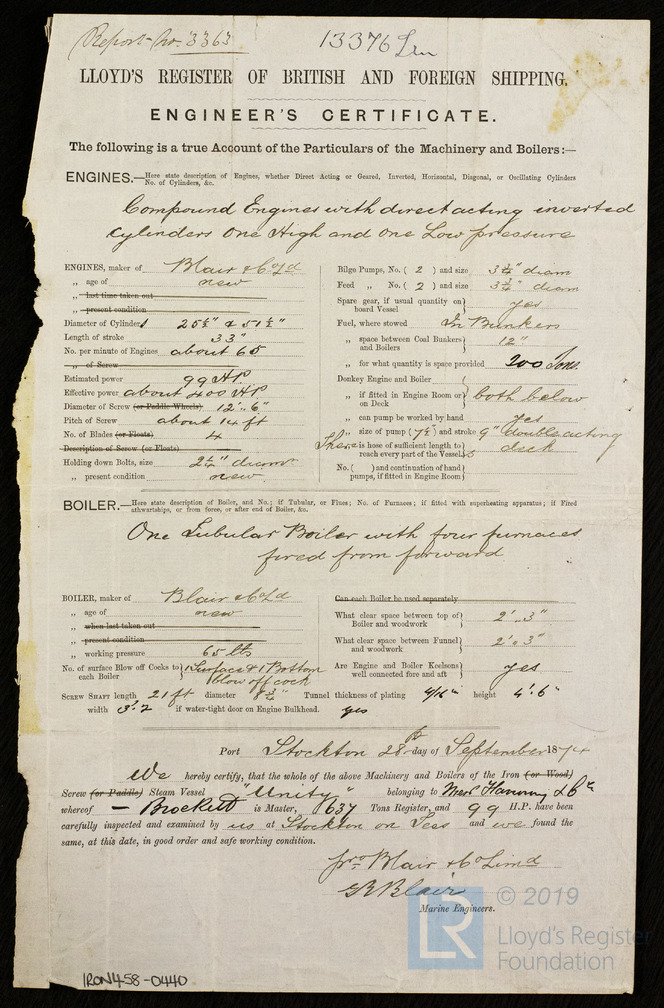 Report No. 3363
13376 Irn
LLOYD'S REGISTER OF BRITISH AND FOREIGN SHIPPING.
ENGINEER'S CERTIFICATE.
The following is a true Account of the Particulars of the Machinery and Boilers:—
ENGINES.—Here state description of Engines, whether Direct Acting or Geared, Inverted, Horizontal, Diagonal, or Oscillating Cylinders
No. of Cylinders, &c.
Compound Engines with direct acting inverted
cylinders One High and One Low pressure
ENGINES, maker of Blair & Co Ld
„ age of new
„ last time taken out
„ present condition
Diameter of Cylinders 25½" & 51½"
Length of stroke 33"
No. per minute of Engines about 65
„ of Screw
Estimated power 99 HP.
Effective power about 400 HP
Diameter of Screw (or Paddle Wheels) 12'..6"
Pitch of Screw about 14 ft
No. of Blades (or Floats) 4
Description of Screw (or Floats)
Holding down Bolts, size 2¼" diamr
„ present condition new
Bilge Pumps, No. ( 2 ) and size 3¾" diam
Feed „ No. ( 2 ) and size 3¾" diam
Spare gear, if usual quantity on board Vessel yes
Fuel, where stowed In Bunkers
„ space between Coal Bunkers and Boilers 12"
„ for what quantity is space provided 200 Tons.
Donkey Engine and Boiler
„ if fitted in Engine Room or on Deck both below
„ can pump be worked by hand yes
„ size of pump (7½) and stroke 9" double acting
There is hose of sufficient length to reach every part of the Vessels deck
No. ( ) and continuation of hand pumps, if fitted in Engine Room
BOILER.—Here state description of Boiler, and No.; if Tubular, or Flues; No. of Furnaces; if fitted with superheating apparatus; if Fired
athwartships, or from force, or after end of Boiler, &c.
One Tubular Boiler with four furnaces
fired from forward
BOILER, maker of Blair & Co Ld
„ age of new
„ when last taken out
„ present condition
„ working pressure 65 lbs
No. of surface Blow off Cocks to each Boiler 1 Surface & 1 Bottom blow off cock
Can each Boiler be used separately
What clear space between top of Boiler and woodwork 2'..3"
What clear space between Funnel and woodwork 2'..3"
Are Engine and Boiler Keelsons well connected fore and aft yes
SCREW SHAFT length 21 ft diameter 8¾" Tunnel thickness of plating 4/16" height 4'.6"
width 3'.2 if water-tight door on Engine Bulkhead. yes
Port Stockton 28th day of September 1874
We hereby certify, that the whole of the above Machinery and Boilers of the Iron (or Wood)
Screw (or Paddle) Steam Vessel "Unity" belonging to Messrs & Co
whereof — Brockett is Master, 637 Tons Register, and 99 H.P. have been
carefully inspected and examined by us at Stockton on Tees and we found the
same, at this date, in good order and safe working condition.
pro Blair & Co Limd
G Blair
Marine Engineers.
© 2019
LR
Lloyd's Register
Foundation
IRON458-0440